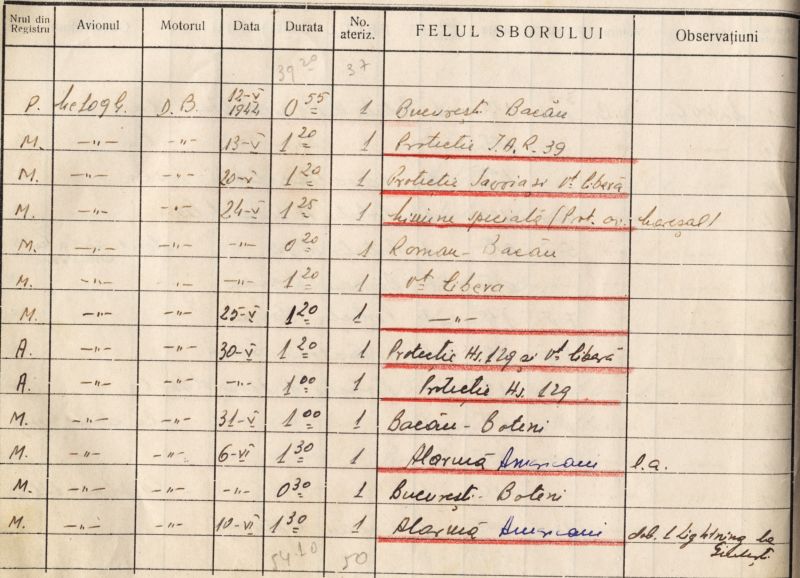 Nrul din Registru Avionul Motorul Data Durata No. ateriz. FELUL SBORULUI Observațiuni
39 20 37
P. Me 109 G. D.B. 12-V 1944 0 55 1 București Bacău
M. -"- -"- 13-V 1 20 1 Protecție I.A.R. 39
M. -"- -"- 20-V 1 20 1 Protecție Savoia și Vt liberă
M. -"- -"- 24-V 1 25 1 Misiune specială (Prot. av. Mareșal)
M. -"- -"- -"- 0 20 1 Roman - Bacău
M. -"- -"- -"- 1 20 1 Vt libera
M. -"- -"- 25-V 1 20 1 -"-
A. -"- -"- 30-V 1 20 1 Protecție Hs. 129 și Vt liberă
A. -"- -"- -"- 1 00 1 Protecție Hs. 129
M. -"- -"- 31-V 1 00 1 Bacău - Boteni
M. -"- -"- 6-VI 1 30 1 Alarmă Americani l.a.
M. -"- -"- -"- 0 30 1 București - Boteni
M. -"- -"- 10-VI 1 30 1 Alarmă Americani dob. 1 Lightning la
54 10 50